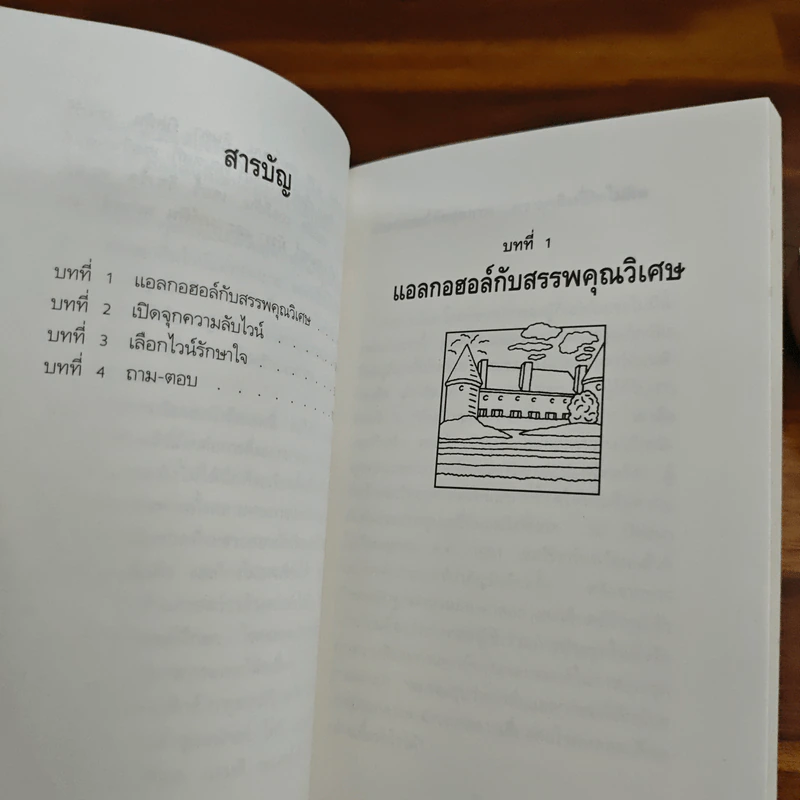 สารบัญ
บทที่ 1 แอลกอฮอล์กับสรรพคุณวิเศษ . . .
บทที่ 2 เปิดจุกความลับไวน์ . . . . .
บทที่ 3 เลือกไวน์รักษาใจ . . . . .
บทที่ 4 ถาม-ตอบ . . . . . . .
บทที่ 1
แอลกอฮอล์กับสรรพคุณวิเศษ